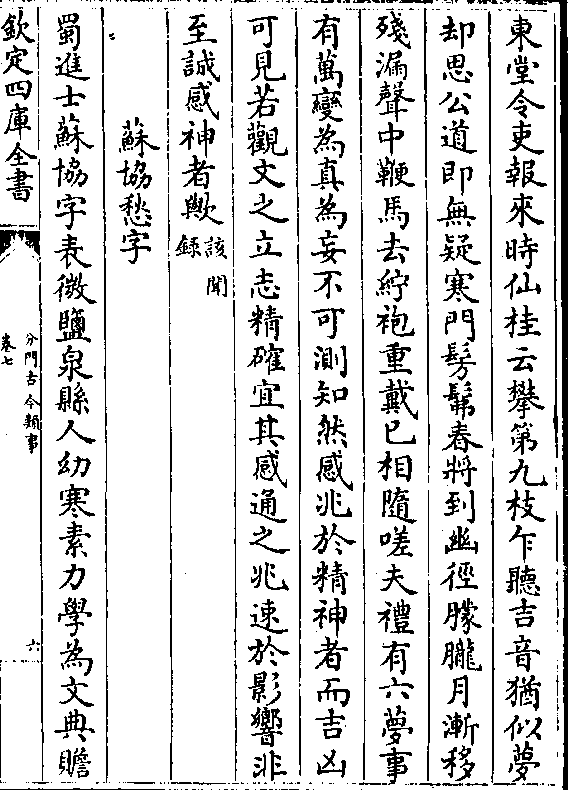 東堂令吏報來時仙桂云攀第九枝乍聽吉音猶似夢
却思公道即無疑寒門髣髴春將到幽徑朦朧月漸移
殘漏聲中鞭馬去紵袍重戴已相隨嗟夫禮有六夢事
有萬變為真為妄不可測知然感兆於精神者而吉凶
可見若觀文之立志精確宜其感通之兆速於影響非
至誠感神者歟該聞録
蘇協愁字
蜀進士蘇協字表微鹽泉縣人幼寒素力學為文典贍
欽定四庫全書
分門古今類事
卷七
六